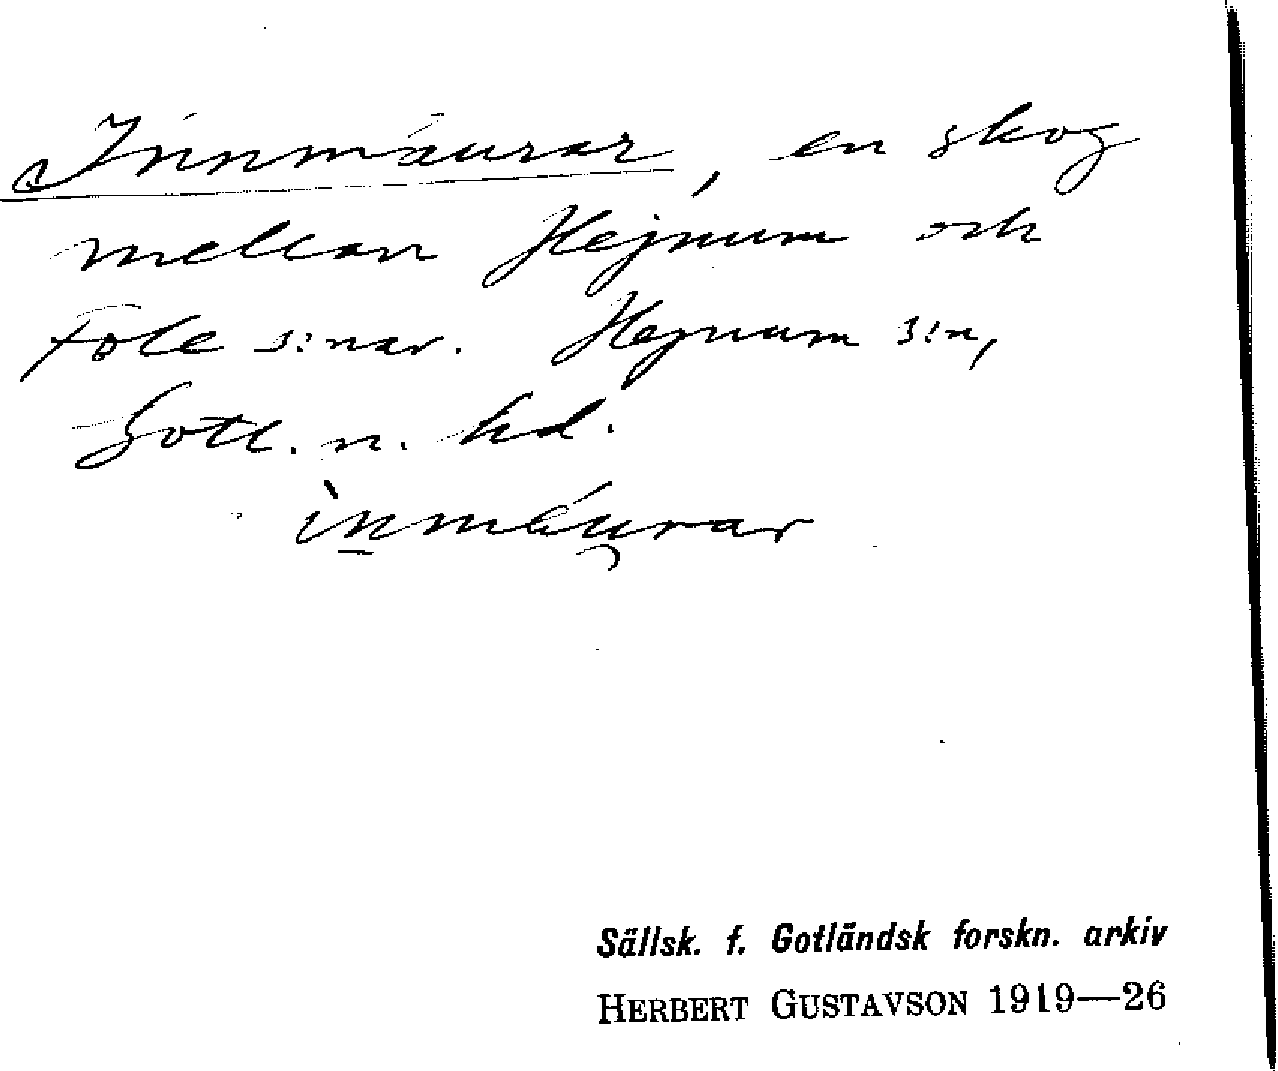 Innmäurar, en skog
mellan Hejnum och
Fole s:nar. Hejnum s:n,
Gotl. n. hd.
ìnmáu̯rar
Sällsk. f. Gotländsk forskn. arkiv
HERBERT GUSTAVSON 1919—26